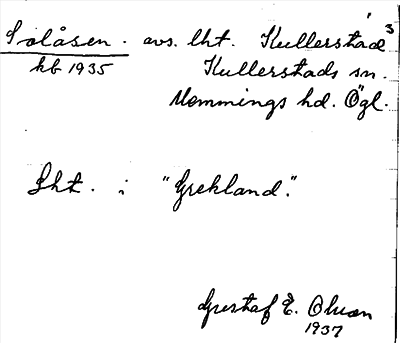 Solåsen. avs. lht. Kullerstad 3
kb 1935 Kullerstads sn.
Memmings hd. Ögl.
Lht. i "Grekland".
Gustaf E. Olson
1937